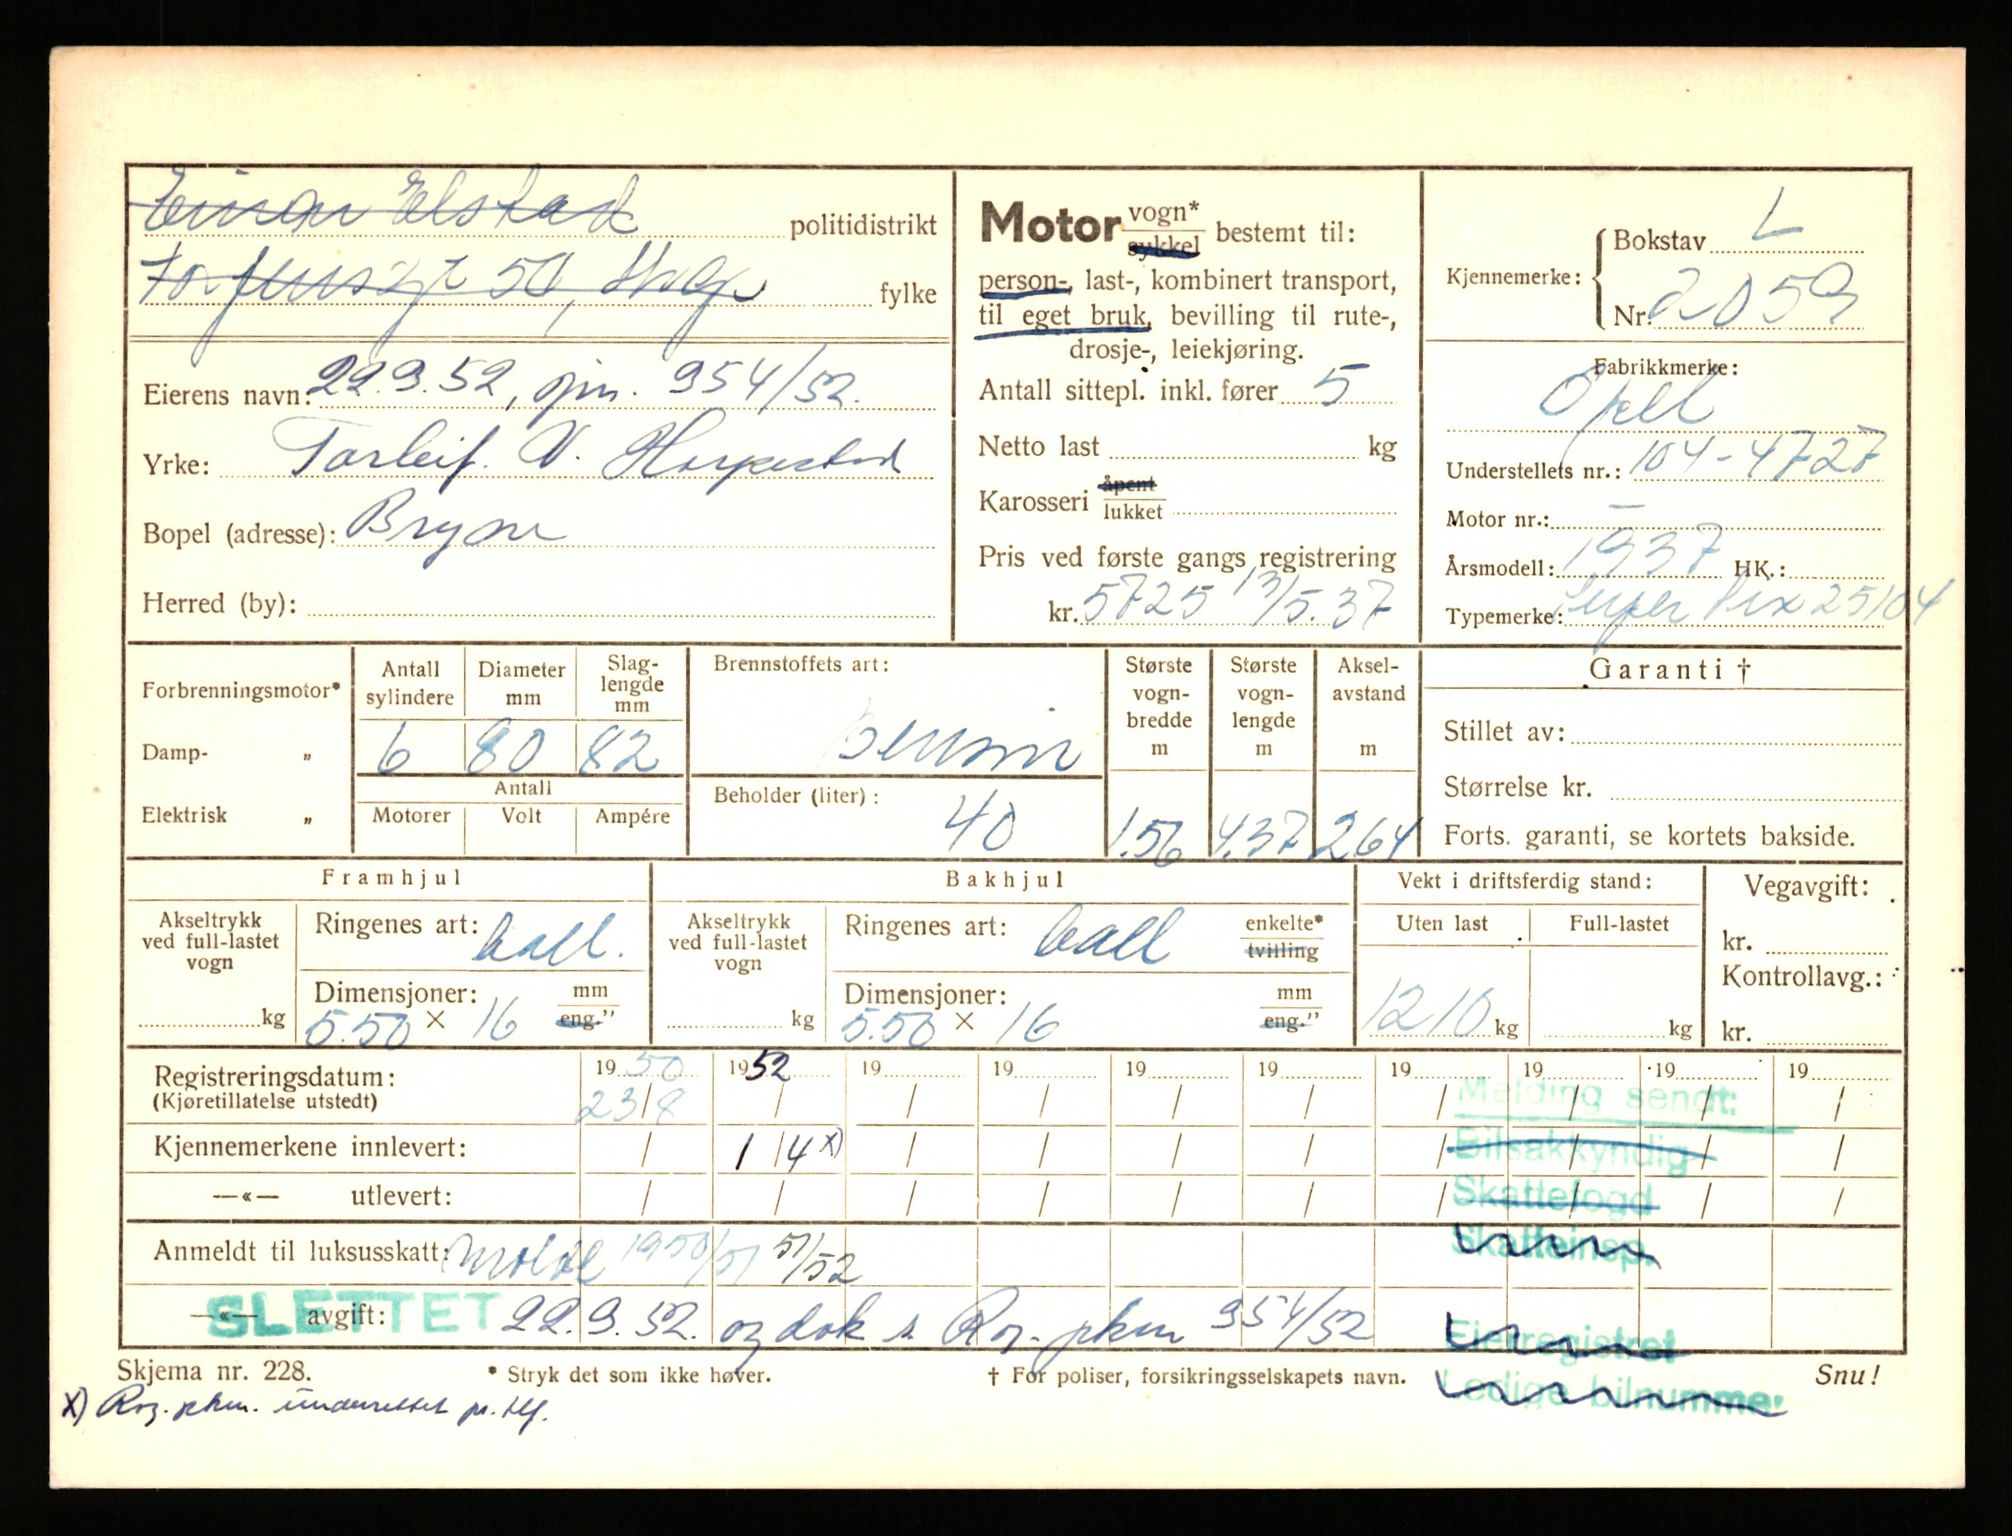 Einar Elstad politidistrikt
50, fylke
Eierens navn: 22.9.52, gjen. 954/52.
Yrke: Torleif. V. Harpestad
Bopel (adresse): Bryne
Herred (by):
Motor vogn* sykkel bestemt til:
person-, last-, kombinert transport,
til eget bruk, bevilling til rute-,
drosje-, leiekjøring.
Antall sittepl. inkl. fører 5
Netto last kg
Karosseri åpent lukket
Pris ved første gangs registrering
kr. 5725 13/5.37
Kjennemerke: Bokstav L
Nr. 2059
Fabrikkmerke:
Opel
Understellets nr.: 104-4727
Motor nr.: –
Årsmodell: 1937 HK.:
Typemerke: Super Six 25104
Forbrenningsmotor*
Damp- „
Elektrisk „
Antall sylindere 6
Diameter mm 80
Slag-lengde mm 82
Antall
Motorer Volt Ampére
Brennstoffets art:
Bensin
Beholder (liter): 40
Største vogn-bredde m 1.56
Største vogn-lengde m 4.37
Aksel-avstand m 264
Garanti †
Stillet av:
Størrelse kr.
Forts. garanti, se kortets bakside.
Framhjul
Akseltrykk ved full-lastet vogn kg
Ringenes art: ball.
Dimensjoner: mm eng."
5.50 × 16
Bakhjul
Akseltrykk ved full-lastet vogn kg
Ringenes art: ball enkelte* tvilling
Dimensjoner: mm eng."
5.50 × 16
Vekt i driftsferdig stand:
Uten last Full-lastet
1210 kg kg
Vegavgift:
kr.
Kontrollavg.:
kr.
Registreringsdatum: 1950 1952 19 19 19 19 19 19 19 19
(Kjøretillatelse utstedt) 23/8 / / / / / / / / /
Melding sendt:
Kjennemerkene innlevert: / 1/4 x) / / / / / / / /
Bilsakkyndig
—«— utlevert: / / / / / / / / / /
Skattefogd
Anmeldt til luksusskatt: Molde 1950/51 51/52
Skatteinsp.
—«— avgift: SLETTET 22.9.52. og dok s. Rog. pkm 954/52
Eierregistret
Skjema nr. 228. * Stryk det som ikke høver. † For poliser, forsikringsselskapets navn. Snu!
Ledige bilnummer
x) Rog. pkm. underrettet pr. tlf.